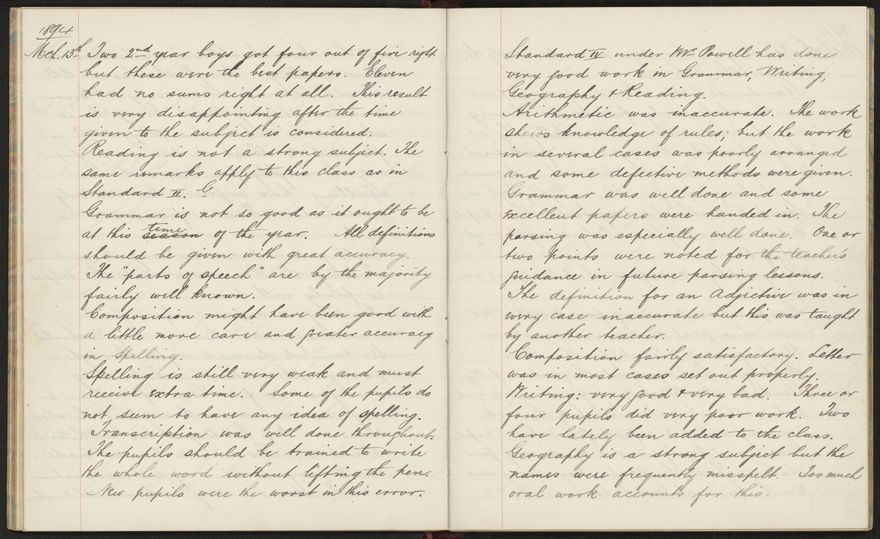 1894
Mch. 13th Two 2nd year boys got four out of five right
but these were the best papers. Eleven
had no sums right at all. This result
is very disappointing after the time
given to the subject is considered.
Reading is not a strong subject. The
same remarks apply to this class as in
Standard II. G
Grammar is not so good as it ought to be
time
at this season of the year. All definitions
should be given with great accuracy.
The "parts of speech" are by the majority
fairly well known.
Composition might have been good with
a little more care and greater accuracy
in spelling.
Spelling is still very weak and must
receive extra time. Some of the pupils do
not seem to have any idea of spelling.
Transcription was well done throughout.
The pupils should be trained to write
the whole word without lifting the pen.
New pupils were the worst in this error.
Standard IV under Mr Powell has done
very good work in Grammar, Writing,
Geography & Reading.
Arithmetic was inaccurate. The work
shews knowledge of rules; but the work
in several cases was poorly arranged
and some defective methods were given.
Grammar was well done and some
excellent papers were handed in. The
parsing was especially well done. One or
two points were noted for the teacher's
guidance in future parsing lessons.
The definition for an Adjective was in
every case inaccurate but this was taught
by another teacher.
Composition fairly satisfactory. Letter
was in most cases set out properly.
Writing: very good & very bad. Three or
four pupils did very poor work. Two
have lately been added to the class.
Geography is a strong subject but the
names were frequently misspelt. Too much
oral work accounts for this.